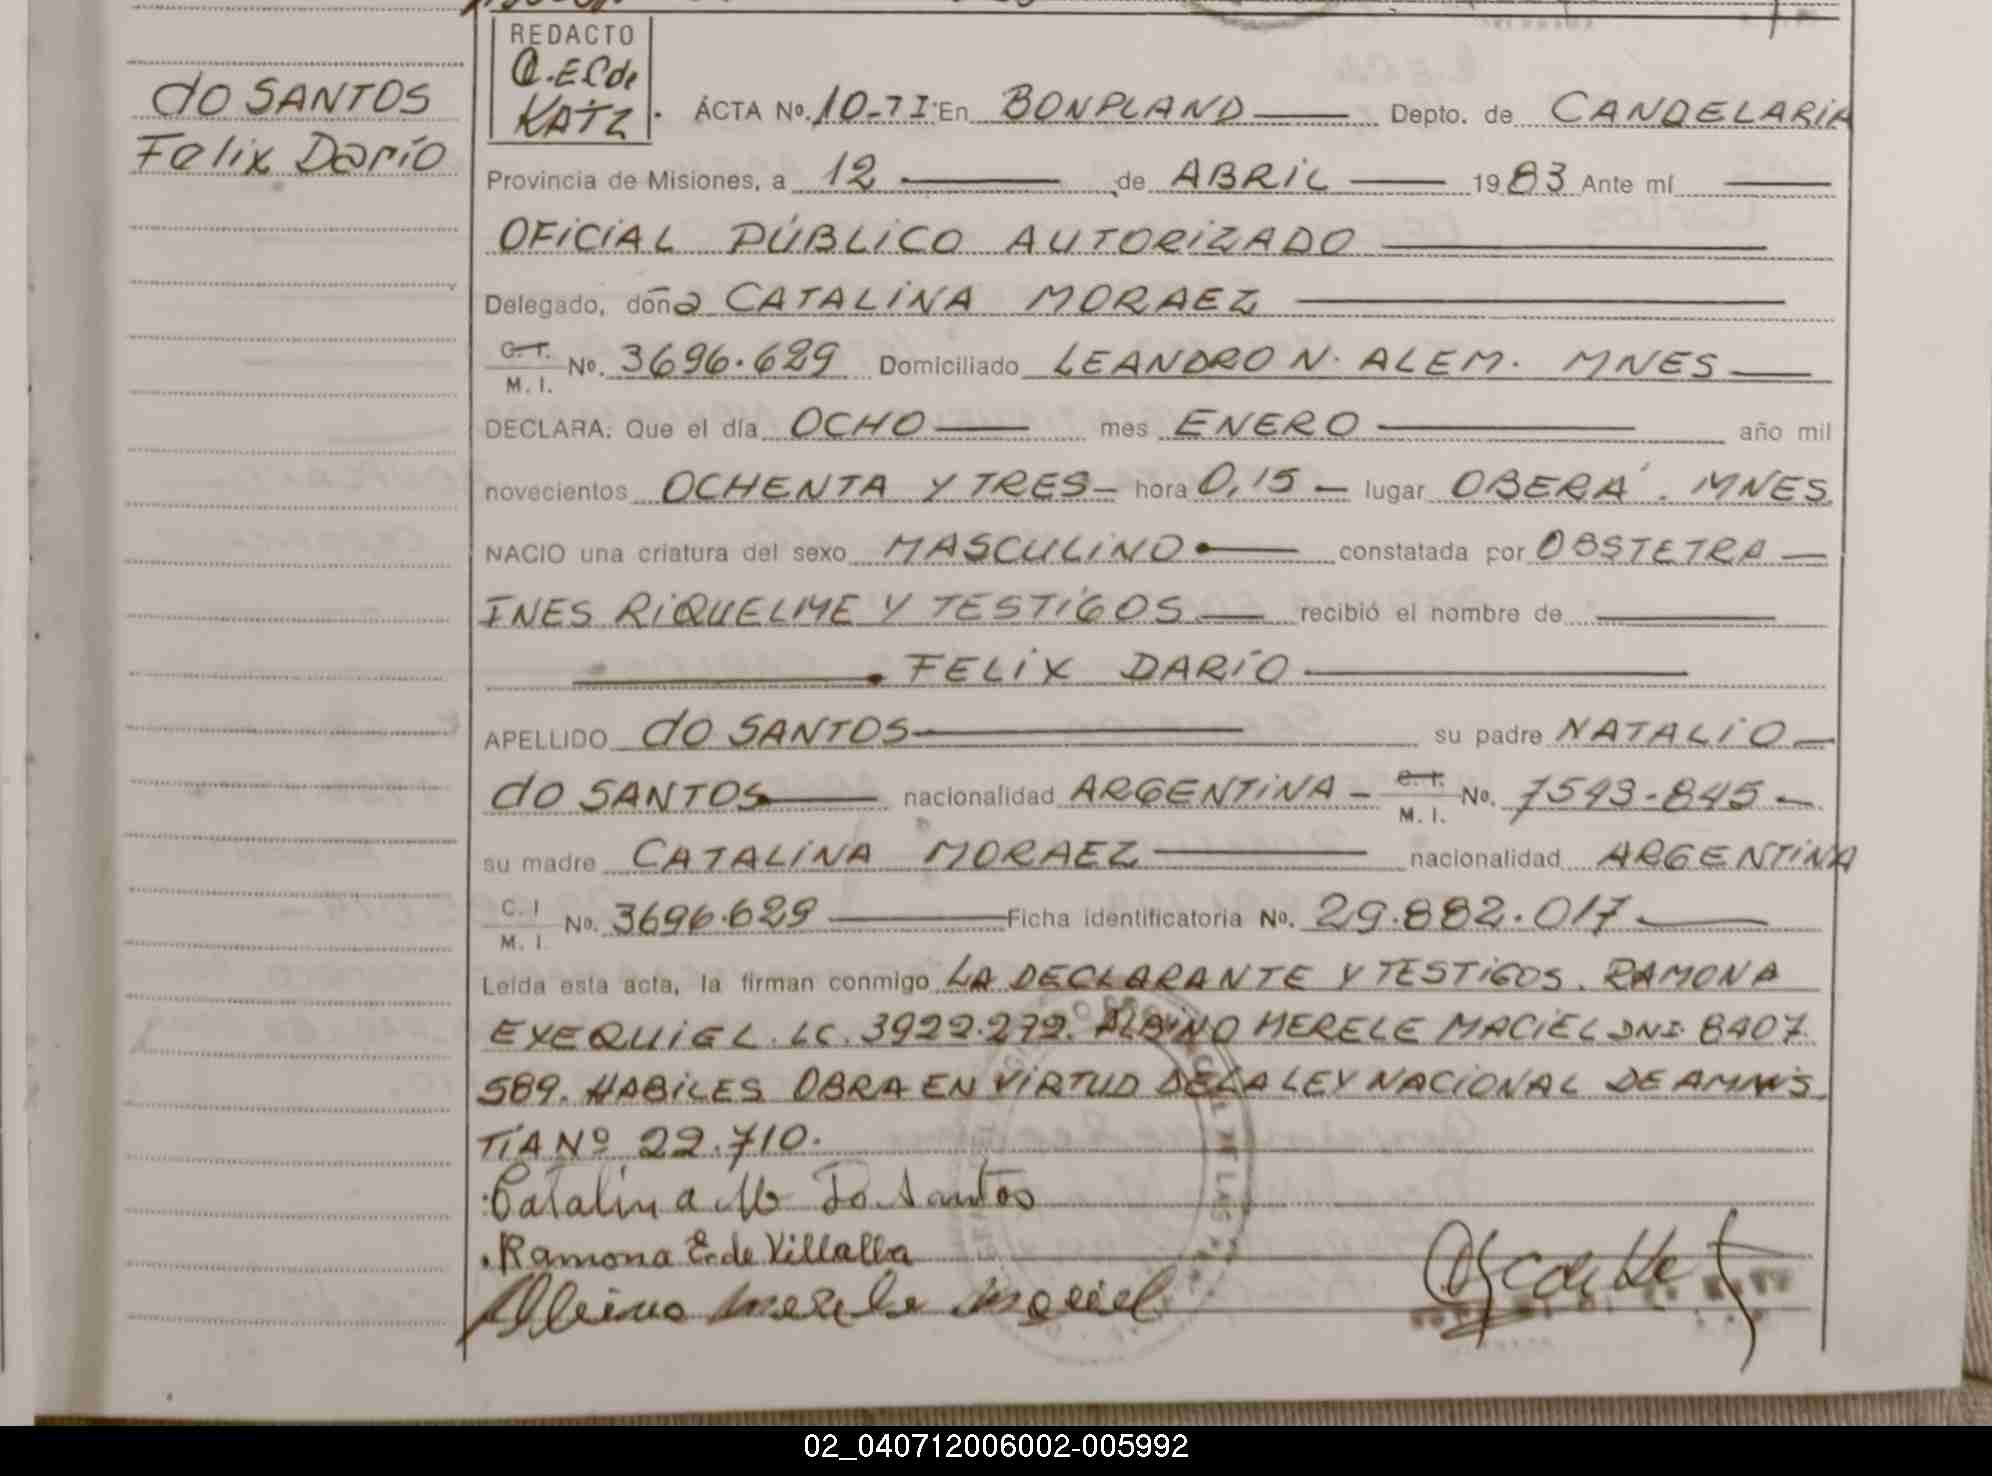 do SANTOS
Felix Darío
REDACTO
KATZ
ACTA Nº. 10-7I En BONPLAND Depto. de CANDELARIA
Provincia de Misiones, a 12 de ABRIL 1983 Ante mí
OFICIAL PÚBLICO AUTORIZADO
Delegado, doña CATALINA MORAEZ
C. I.
M. I. No. 3696.629 Domiciliado LEANDRO N. ALEM. MNES
DECLARA: Que el día OCHO mes ENERO año mil
novecientos OCHENTA Y TRES- hora 0,15 - lugar OBERÁ. MNES.
NACIO una criatura del sexo MASCULINO constatada por OBSTETRA
INES RIQUELME Y TESTIGOS recibió el nombre de
FELIX DARÍO
APELLIDO do SANTOS su padre NATALIO
do SANTOS nacionalidad ARGENTINA - C. I.
M. I. No. 7543-845
su madre CATALINA MORAEZ nacionalidad ARGENTINA
C. I
M. I. No. 3696.629 Ficha identificatoria No. 29.882.017
Leída esta acta, la firman conmigo LA DECLARANTE Y TESTIGOS. RAMONA
EXEQUIEL. LC. 3922.272. ALBINO MERELE MACIEL DNI 8407
589. HABILES OBRA EN VIRTUD DE LA LEY NACIONAL DE AMNIS
TIA Nº 22.710.
Catalina M Do Santos
Ramona E. de Villalba
Albino Merele Maciel
02_040712006002-005992